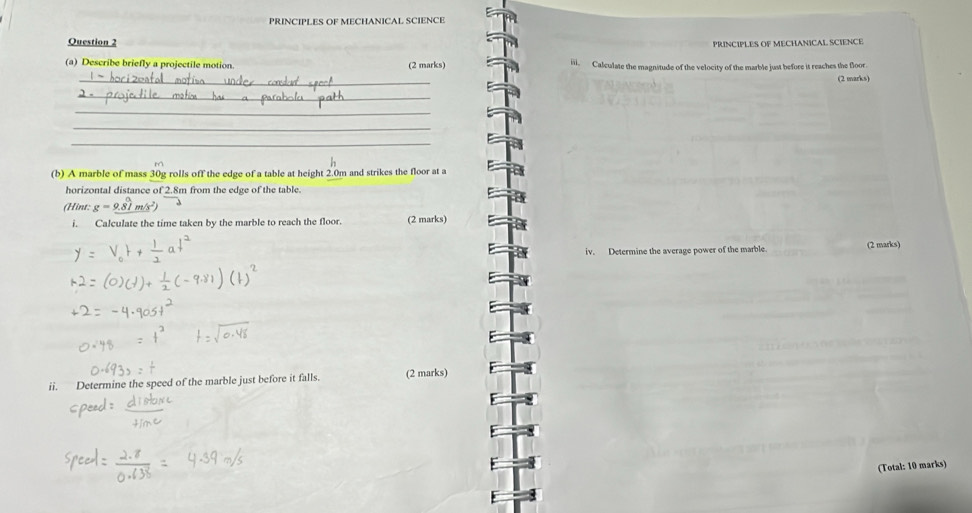 PRINCIPLES OF MECHANICAL SCIENCE
Question 2
(a) Describe briefly a projectile motion. (2 marks)
1- horizontal motion under
2- projectile motion has a parabola path
m h
(b) A marble of mass 30g rolls off the edge of a table at height 2.0m and strikes the floor at a
horizontal distance of 2.8m from the edge of the table.
(Hint: g = 9.81 m/s²)
i. Calculate the time taken by the marble to reach the floor. (2 marks)
y = V₀t + 1/2 at²
+2 = (0)(t) + 1/2 (-9.81) (t)²
+2 = -4.905t²
0.48 = t² t = √0.48
0.693s = t
ii. Determine the speed of the marble just before it falls. (2 marks)
speed = distance / time
Speed = 2.8 / 0.638 = 4.39 m/s
PRINCIPLES OF MECHANICAL SCIENCE
iii. Calculate the magnitude of the velocity of the marble just before it reaches the floor.
(2 marks)
iv. Determine the average power of the marble. (2 marks)
(Total: 10 marks)